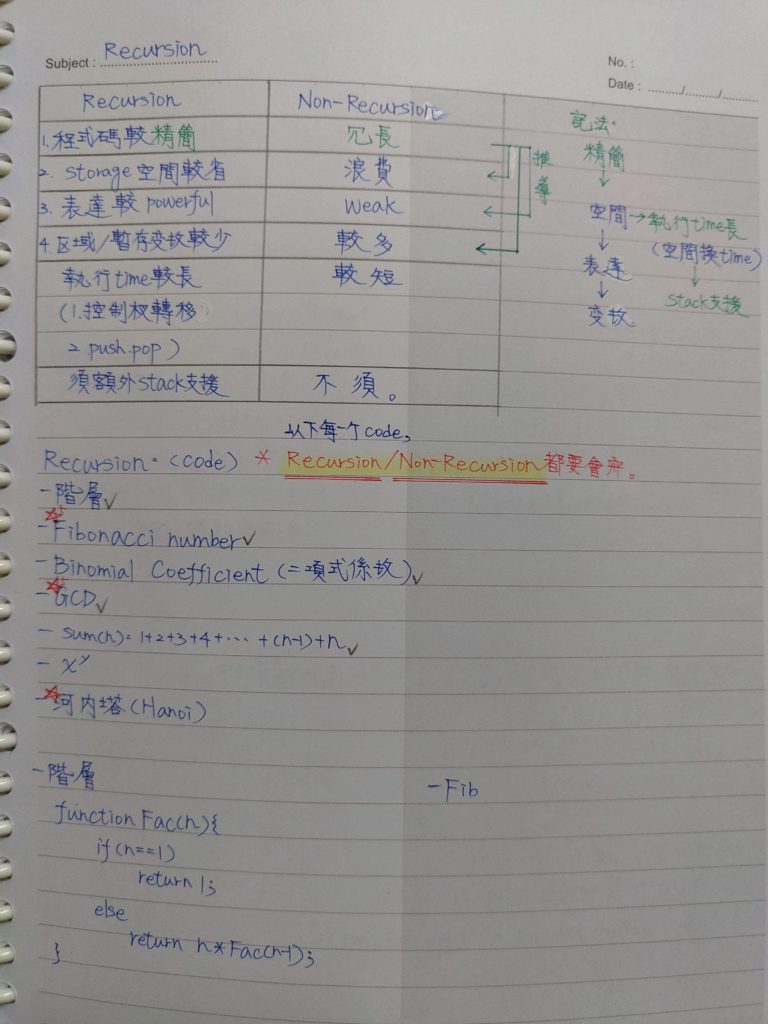 Subject : Recursion
No. :
Date : ......../......../........
Recursion Non-Recursion
1.程式碼較精簡 冗長
2. storage空間較省 浪費
3. 表達較powerful weak
4.区域/暫存变故較少 較多
執行time較長 較短
(1.控制权轉移
2 push.pop)
須額外stack支援 不須。
推導
記法:
精簡
空間→執行time長
(空間換time)
表達
stack支援
变故
以下每一个code,
Recursion:(code) * Recursion/Non-Recursion都要會寫。
-階層✓
☆-Fibonacci number✓
-Binomial Coefficient (二項式係故)✓
☆-GCD✓
- sum(n)=1+2+3+4+...+(n-1)+n✓
- x^y
☆-河内塔(Hanoi)
-階層
function Fac(n){
if(n==1)
return 1;
else
return n*Fac(n-1);
}
-Fib